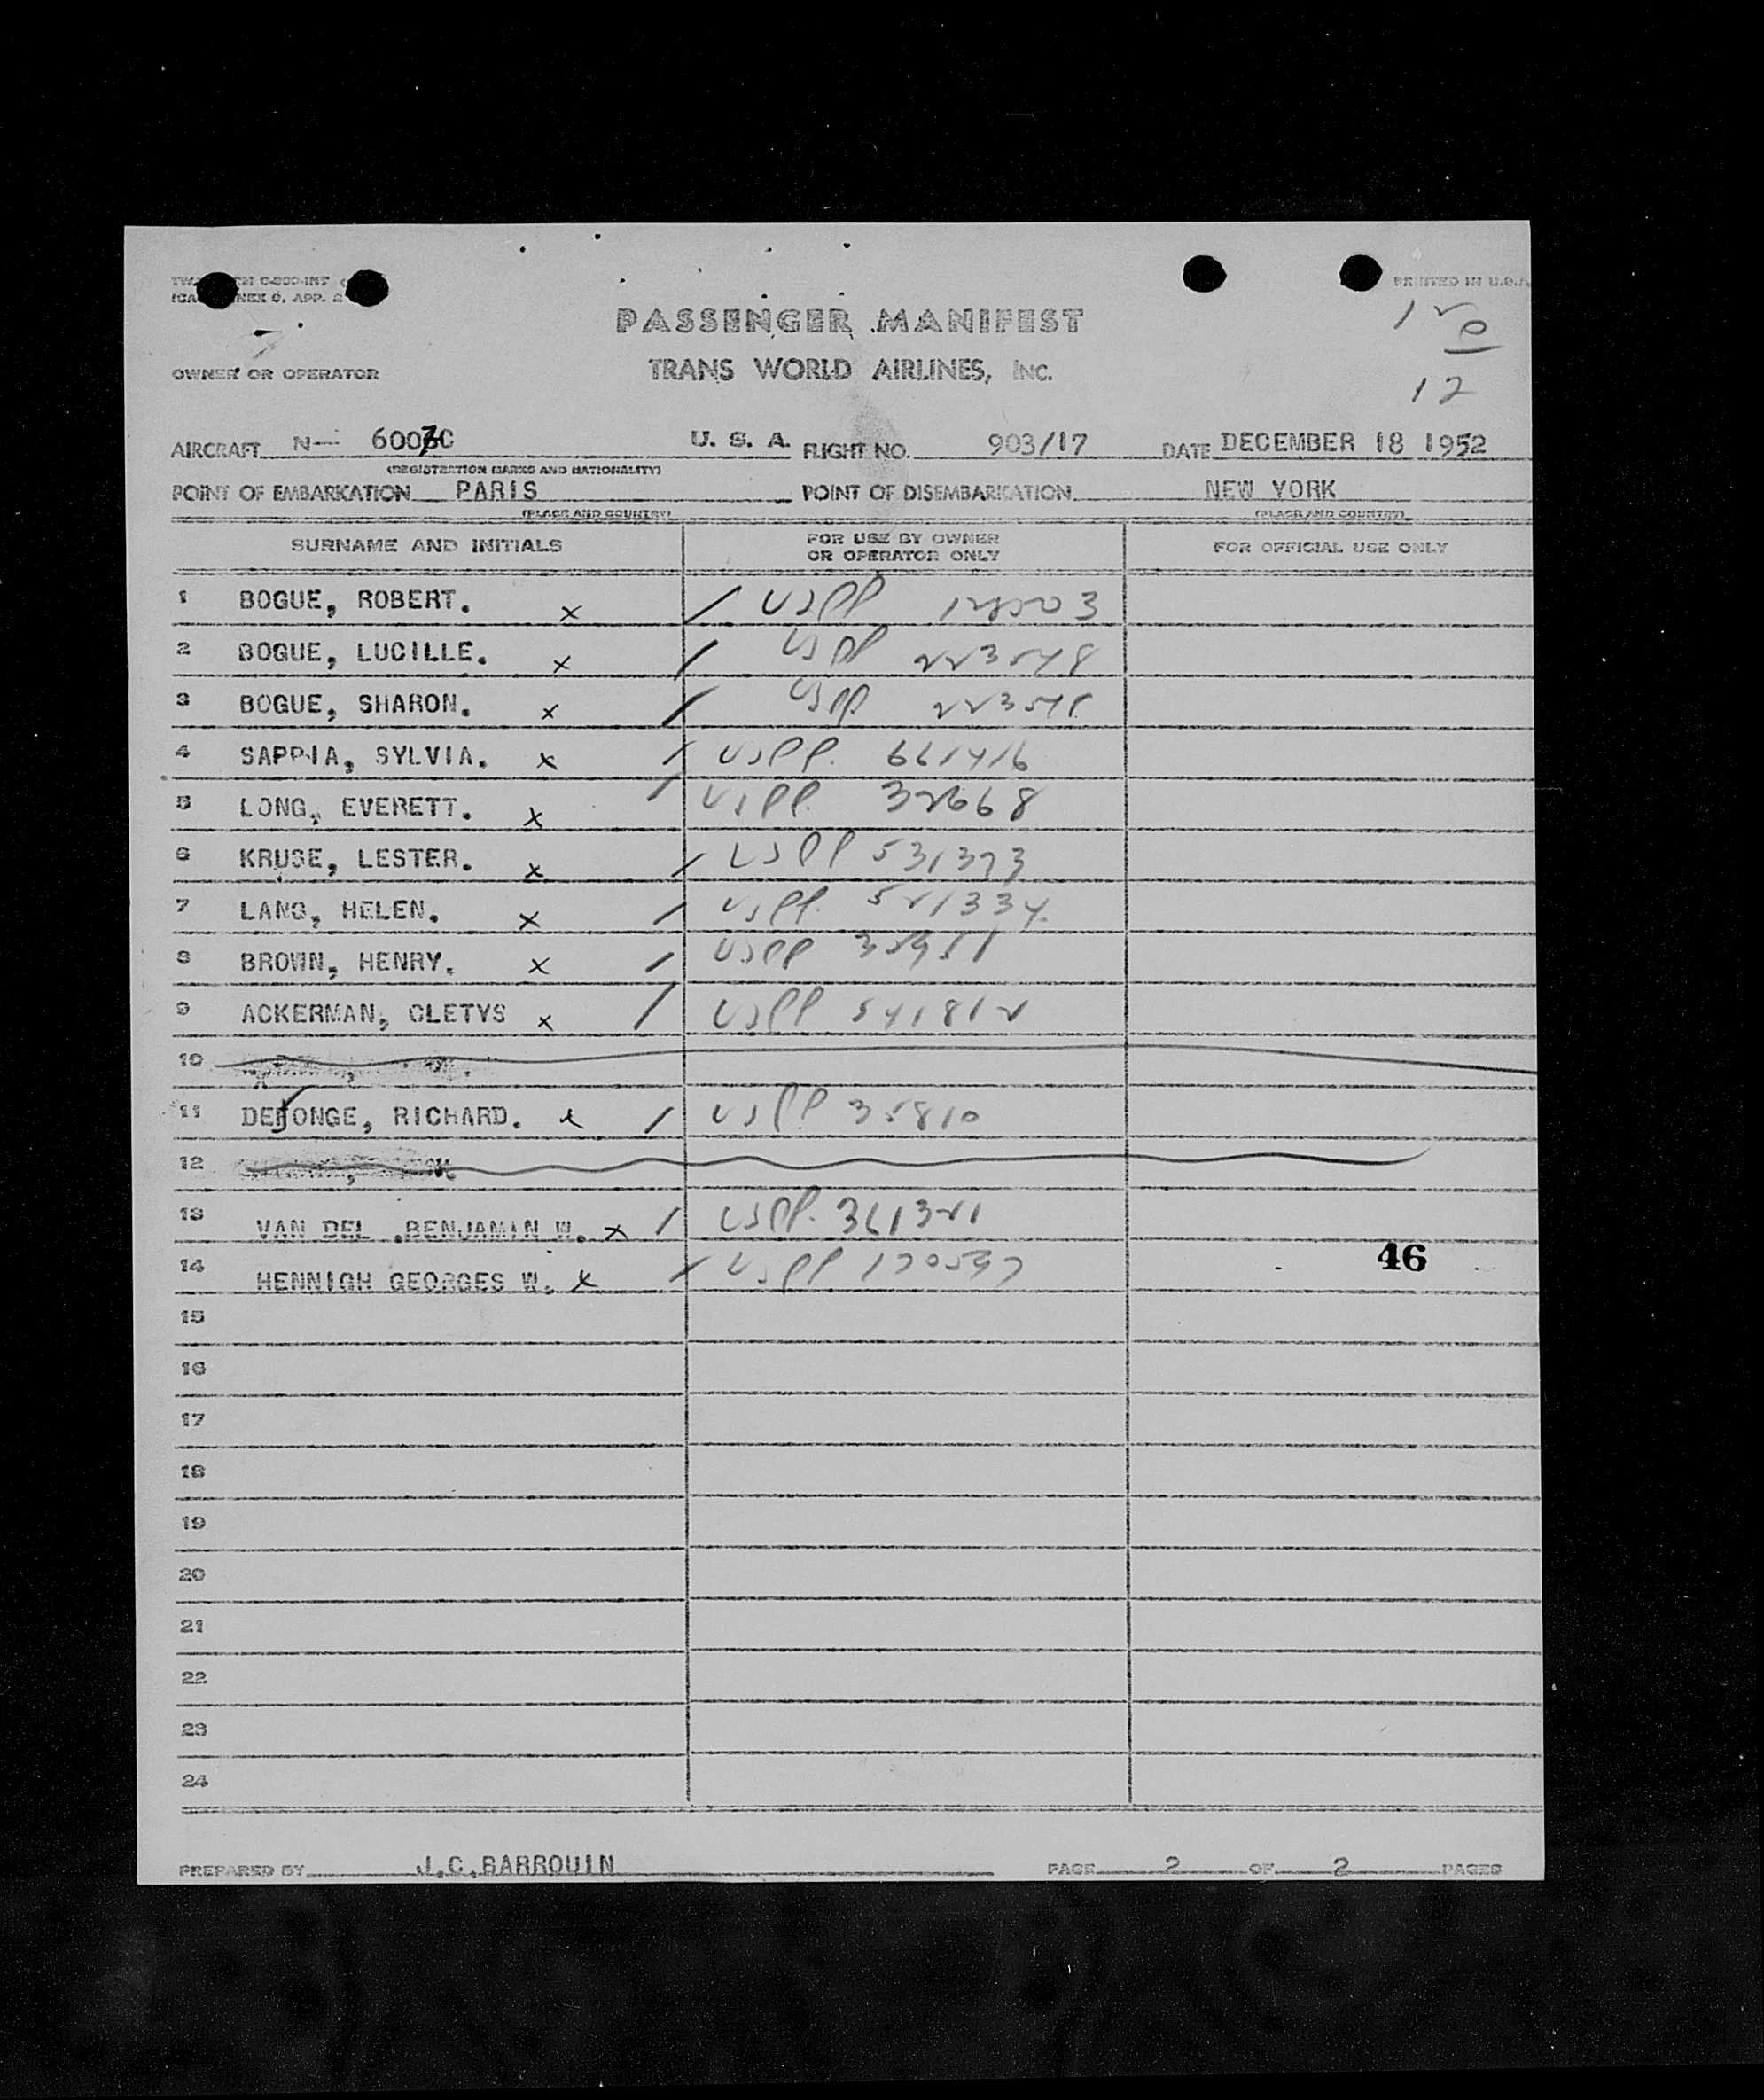 PRINTED IN U.S.A.
PASSENGER MANIFEST
12
OWNER OR OPERATOR TRANS WORLD AIRLINES, INC.
12
AIRCRAFT N- U. S. A. FLIGHT NO. 903/17 DATE DECEMBER 18 1952
(REGISTRATION MARKS AND NATIONALITY)
POINT OF EMBARKATION PARIS POINT OF DISEMBARKATION NEW YORK
(PLACE AND COUNTRY) (PLACE AND COUNTRY)
SURNAME AND INITIALS FOR USE BY OWNER OR OPERATOR ONLY FOR OFFICIAL USE ONLY
1 BOGUE, ROBERT. x / USPP
2 BOGUE, LUCILLE. x / USPP 223548
3 BOGUE, SHARON. x / USPP 223548
4 SAPPIA, SYLVIA. x / USPP. 661416
5 LONG, EVERETT. x / USPP. 32668
6 KRUSE, LESTER. x / USPP 531393
7 LANG, HELEN. x / USPP. 521334.
8 BROWN, HENRY. x / USPP
9 ACKERMAN, CLETYS x / USPP 541812
10
11 DEJONGE, RICHARD. x / USPP 35810
12
13 VAN DEL .BENJAMIN W. x / USPP. 361321
14 HENNIGH GEORGES W. x / USPP 46
15
16
17
18
19
20
21
22
23
24
PREPARED BY J.C.BARROUIN PAGE 2 OF 2 PAGES